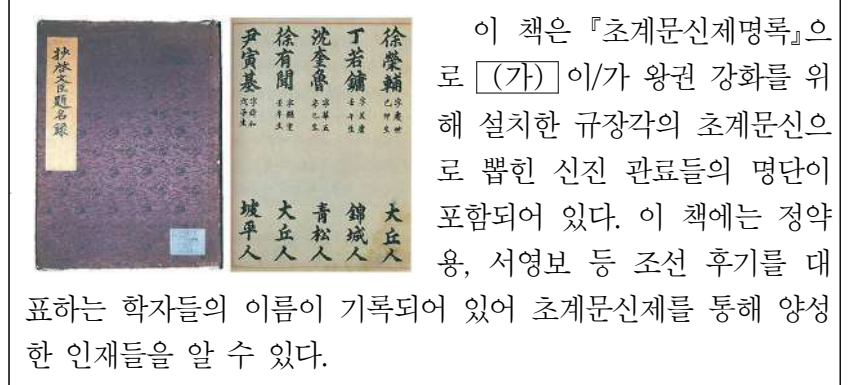 抄啓文臣題名錄
徐榮輔 字慶世 己卯生 大丘人
丁若鏞 字美庸 壬午生 錦城人
沈奎魯 字華五 辛巳生 青松人
徐有聞 字鶴叟 壬午生 大丘人
尹寅基 戊子生 坡平人
이 책은 『초계문신제명록』으
로 (가) 이/가 왕권 강화를 위
해 설치한 규장각의 초계문신으
로 뽑힌 신진 관료들의 명단이
포함되어 있다. 이 책에는 정약
용, 서영보 등 조선 후기를 대
표하는 학자들의 이름이 기록되어 있어 초계문신제를 통해 양성
한 인재들을 알 수 있다.